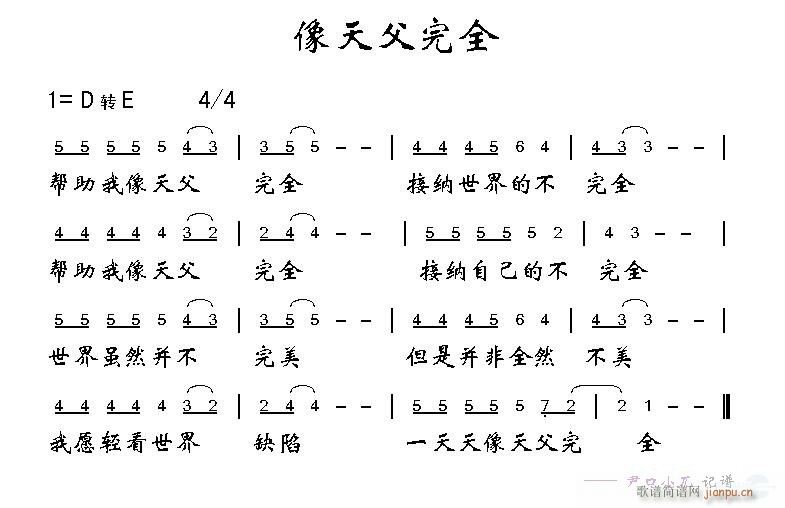 像天父完全
1= D 转 E 4/4
5 5 5 5 5 4 3 | 3 5 5 - - | 4 4 4 5 6 4 | 4 3 3 - - |
帮助我像天父 完全 接纳世界的不 完全
4 4 4 4 4 3 2 | 2 4 4 - - | 5 5 5 5 5 2 | 4 3 - - |
帮助我像天父 完全 接纳自己的不 完全
5 5 5 5 5 4 3 | 3 5 5 - - | 4 4 4 5 6 4 | 4 3 3 - - |
世界虽然并不 完美 但是并非全然 不美
4 4 4 4 4 3 2 | 2 4 4 - - | 5 5 5 5 5 7 2 | 2 1 - - ‖
我愿轻看世界 缺陷 一天天像天父完 全
—— 尹口小瓦 记谱
歌谱简谱网 jianpu.cn